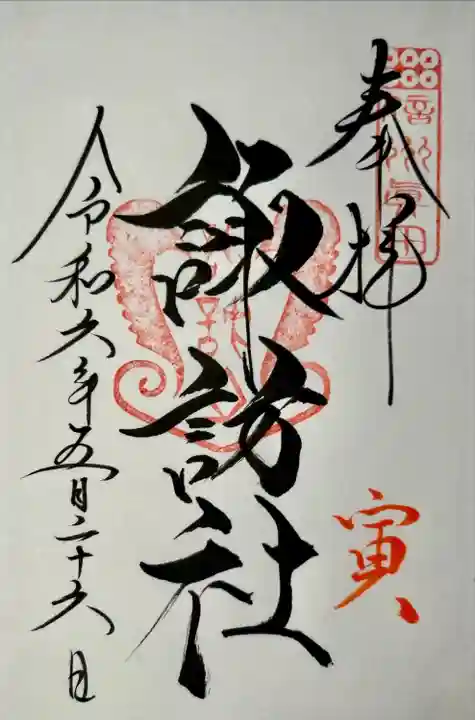 奉拝
信州眞田
寅
諏訪社
令和六年五月二十六日